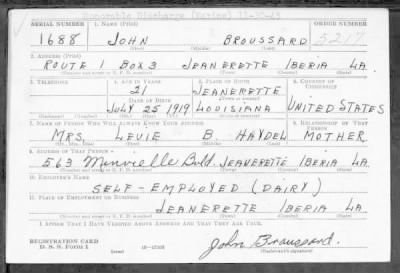 Honorable Discharge (Marine) 11-30-45
SERIAL NUMBER 1. NAME (Print) ORDER NUMBER
1688 JOHN BROUSSARD 5217
(First) (Middle) (Last)
2. ADDRESS (Print)
ROUTE 1 BOX 3 JEANERETTE IBERIA LA.
(Number and street or R. F. D. number) (Town) (County) (State)
3. TELEPHONE 4. AGE IN YEARS 5. PLACE OF BIRTH 6. COUNTRY OF CITIZENSHIP
21 JEANERETTE
DATE OF BIRTH (Town or county)
JULY 25 1919 LOUISIANA UNITED STATES
(Mo.) (Day) (Yr.) (State or country)
7. NAME OF PERSON WHO WILL ALWAYS KNOW YOUR ADDRESS 8. RELATIONSHIP OF THAT PERSON
MRS. LEVIE B. HAYDEL MOTHER
(Mr., Mrs., Miss) (First) (Middle) (Last)
9. ADDRESS OF THAT PERSON
563 Minvielle Buld. JEANERETTE IBERIA LA.
(Number and street or R. F. D. number) (Town) (County) (State)
10. EMPLOYER'S NAME
SELF-EMPLOYED (DAIRY)
11. PLACE OF EMPLOYMENT OR BUSINESS
JEANERETTE IBERIA LA.
(Number and street or R. F. D. number) (Town) (County) (State)
I AFFIRM THAT I HAVE VERIFIED ABOVE ANSWERS AND THAT THEY ARE TRUE.
REGISTRATION CARD
D. S. S. Form 1 (over) 16-17105 John Broussard.
(Registrant's signature)